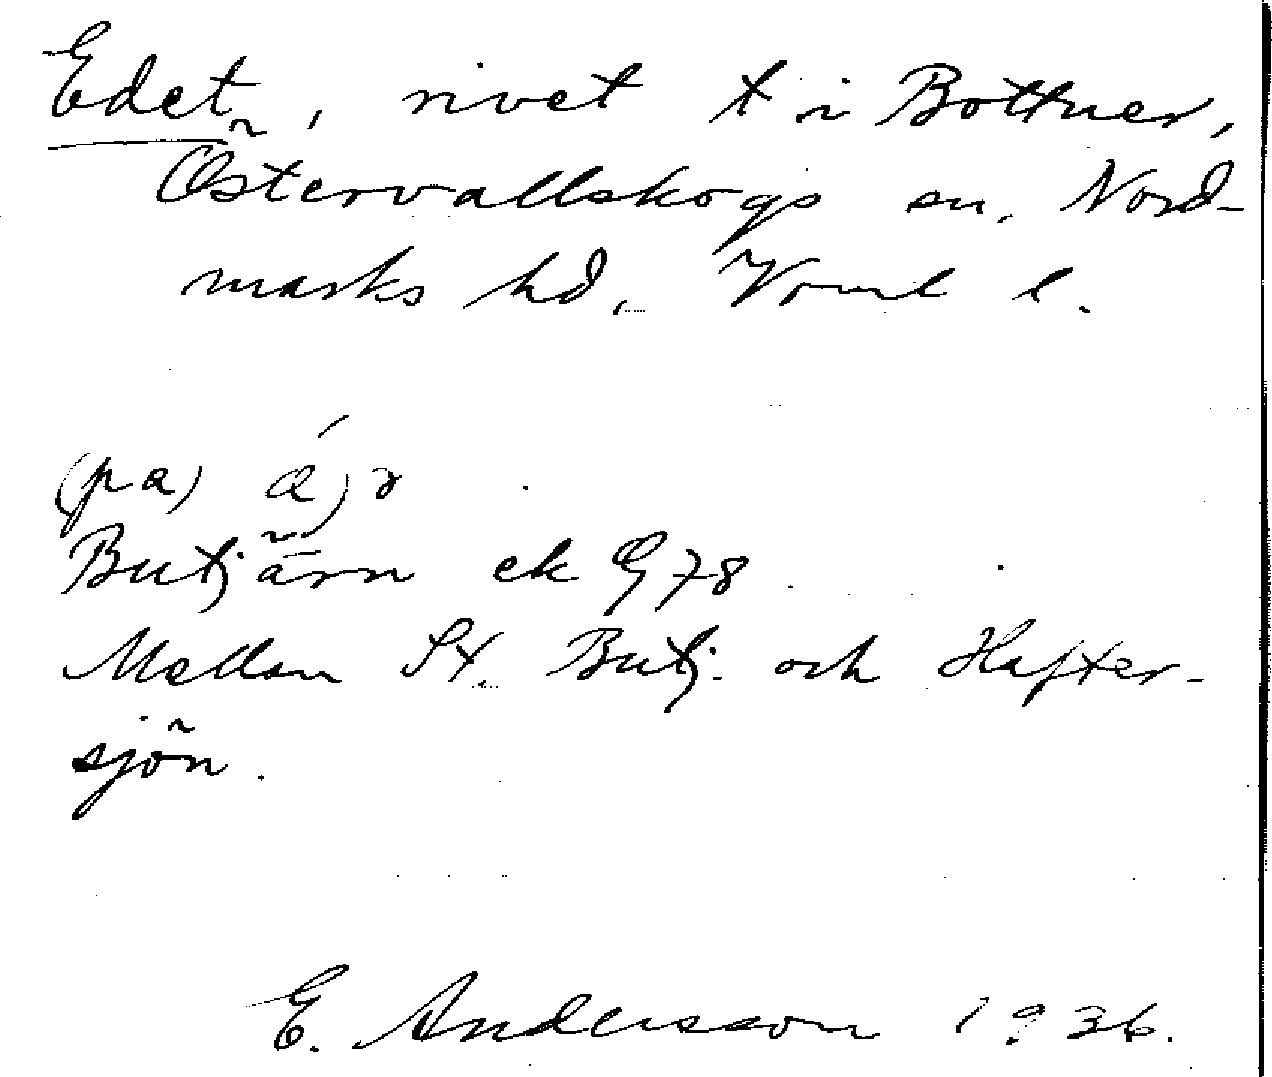 Edet, rivet t i Bottner,
Östervallskogs sn, Nord-
marks hd, Vrml l.
(pa)
Butjärn ek G 78
Mellan St. Butj. och Hafter-
sjön.
E. Andersson 1936.